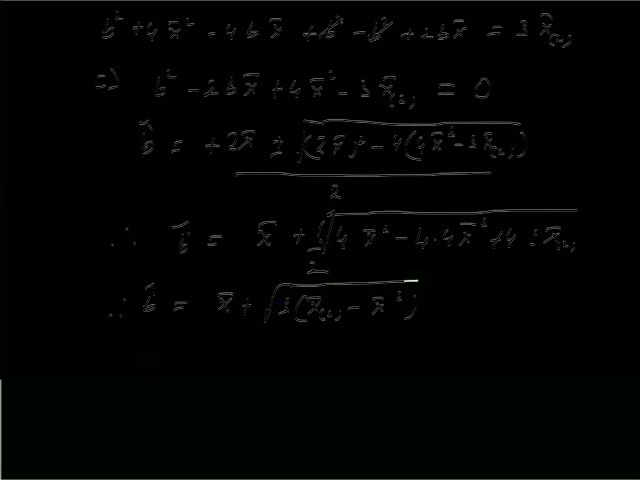 b² + 4x̄² - 4bx̄ + b² - b² + 2bx̄ = 3x̄₍₂₎
⇒) b² - 2bx̄ + 4x̄² - 3x̄₍₂₎ = 0
b̂ = +2x̄ ± √((2x̄)² - 4(4x̄² - 3x̄₍₂₎)) / 2
∴ b̂ = x̄ + ½√(4x̄² - 4·4x̄² + 4·3x̄₍₂₎)
∴ b̂ = x̄ + √(3(x̄₍₂₎ - x̄²))